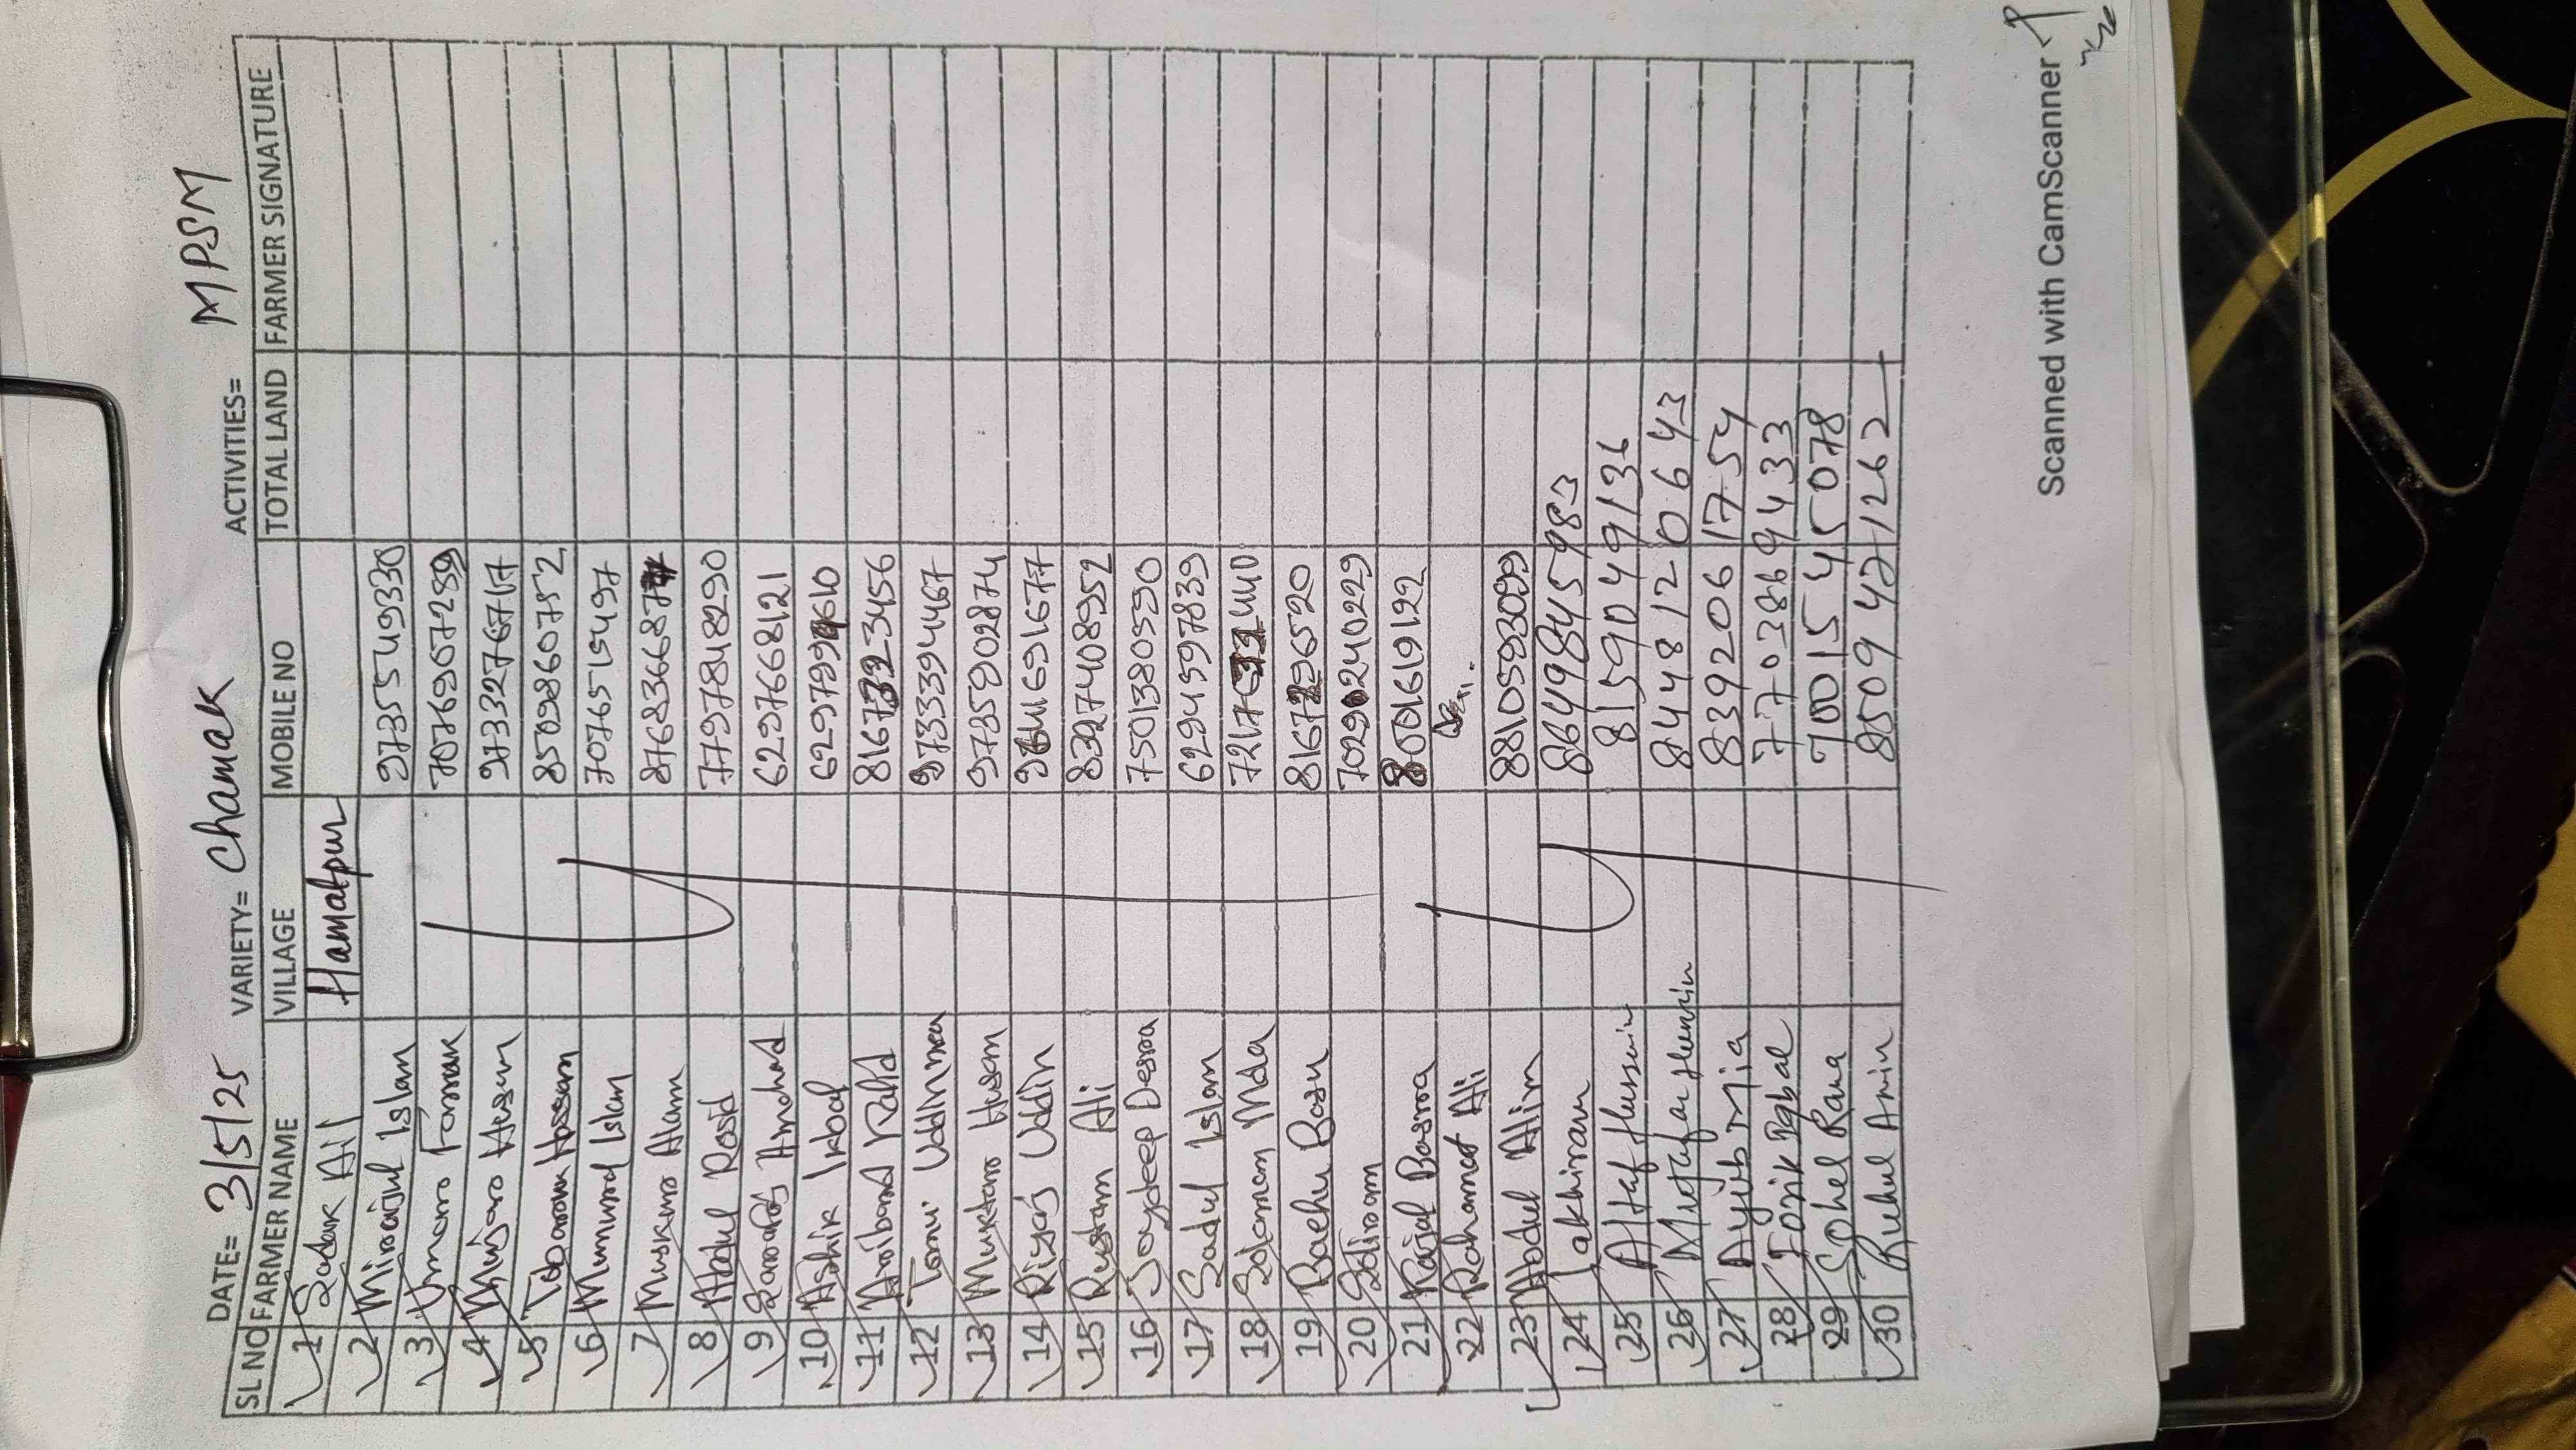 DATE= 3/5/25 VARIETY= Chamak ACTIVITIES= MPSM
SL NO FARMER NAME VILLAGE MOBILE NO TOTAL LAND FARMER SIGNATURE
1 Sadek Ali Hamatpur
2 Mirajul Islam 9735549330
3 Umaro Foruk 7076907289
4 Mijaro Hosen 9733276717
5 Hossam 8509860752
6 Mumrul Islam 7076515497
7 Muskuro Alam 87683668
8 Abdul Rosid 7797848290
9 Ahmohed 6297668121
10 Ashik Ikbal
11 Kalid
12 Uddinmea 9733394467
13 Muktaro Husan 9735902874
14 Riyaj Uddin
15 Rustam Ali 8327408952
16 Joydeep Desra 7501380590
17 Sadul Islam 6294597839
18 Soloman Mda
19 Bachu Basu
20 Sdiram
21 Kajal Basra 8001619122
22 Rahamot Ali
23 Abdul Alim 8810593099
24 Lakhiram 8649845983
25 Altaf Hussain 8159049136
26 Mujafar Hussain 8448120643
27 Ayub Mia 8392061754
28 Iqbal 7703869433
29 Sohel Rana 7001545078
30 Ruhul Amin 8509421262
Scanned with CamScanner